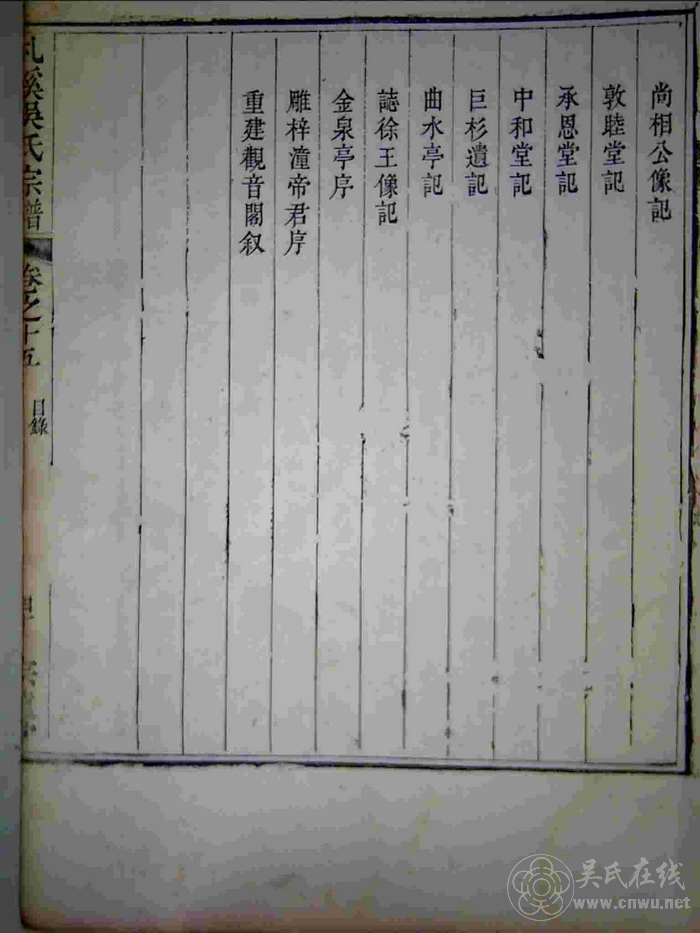 尚相公像記
敦睦堂記
承恩堂記
中和堂記
巨杉遺記
曲水亭記
誌徐王像記
金泉亭序
雕梓潼帝君序
重建觀音閣叙
溪吳氏宗譜
卷之十五
目錄
吴氏在线
www.cnwu.net